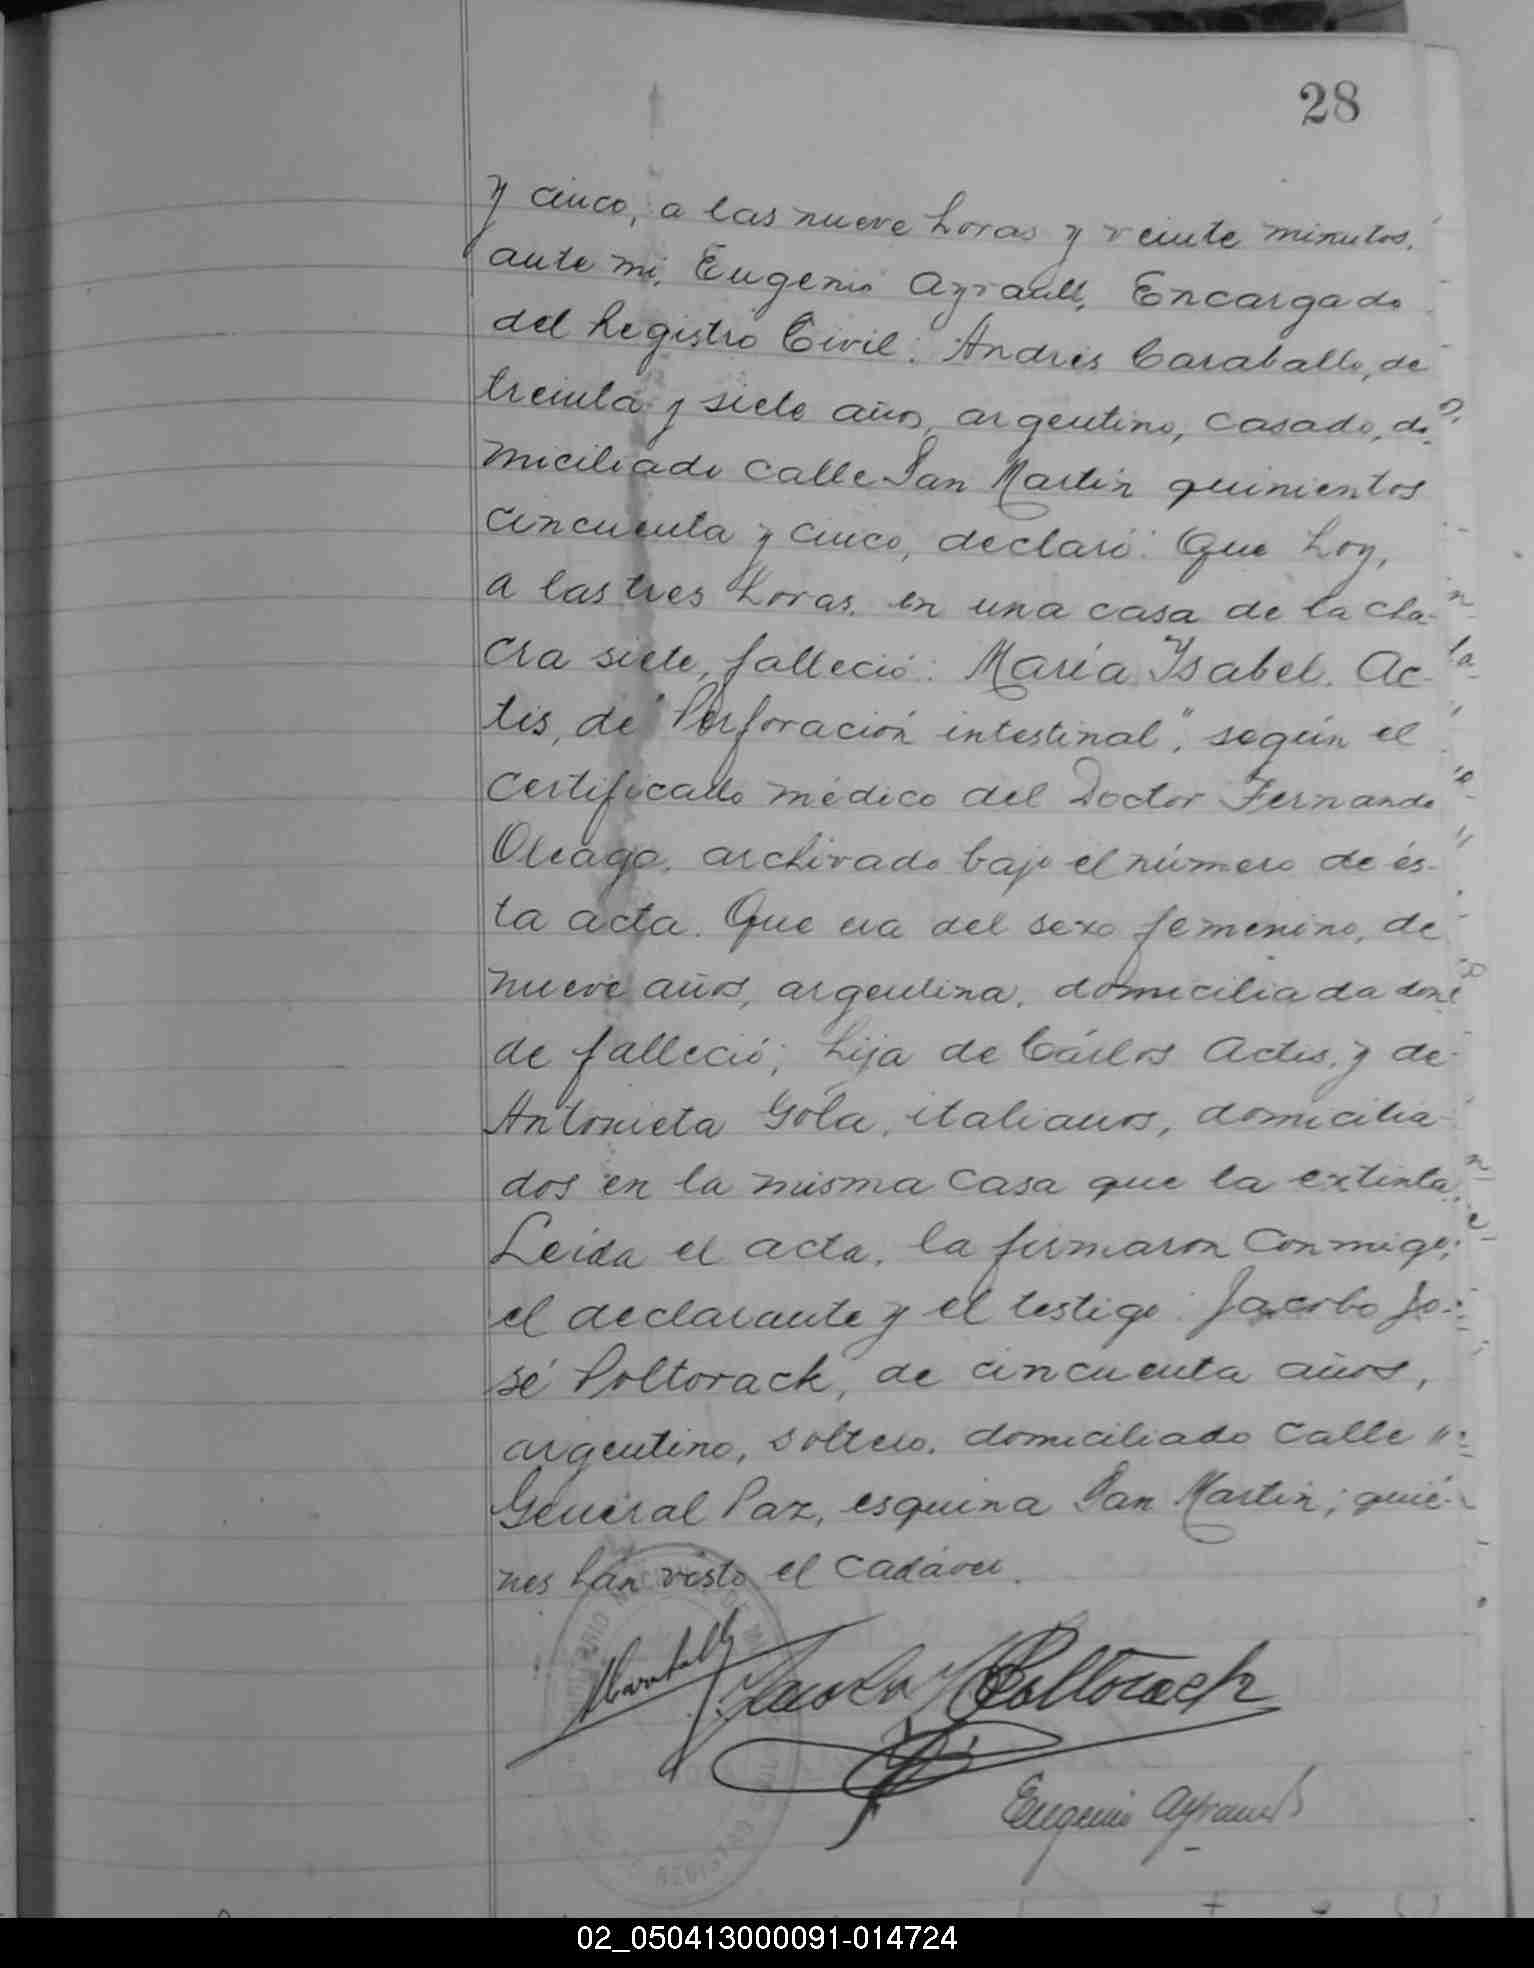 28
y cinco, a las nueve horas y veinte minutos,
ante mi, Eugenio Ayrault, Encargado
del Registro Civil: Andrés Caraballo, de
treinta y siete años, argentino, casado, do-
miciliado calle San Martín quinientos
cincuenta y cinco, declaró: Que hoy,
a las tres horas, en una casa de la cha-
cra siete, falleció: María Ysabel Ac-
tis, de "Perforación intestinal", según el
certificado médico del Doctor Fernando
Oleaga, archivado bajo el número de és-
ta acta. Que era del sexo femenino, de
nueve años, argentina, domiciliada don-
de falleció; hija de Cárlos Actis, y de
Antonieta Gola, italianos, domicilia-
dos en la misma casa que la extinta.
Leída el acta, la firmaron conmigo;
el declarante y el testigo: Jacobo Jo-
sé Poltorack, de cincuenta años,
argentino, soltero, domiciliado calle
General Paz, esquina San Martín; quié-
nes han visto el cadáver.
Jacobo J Poltorack
Eugenio Ayrault
02_050413000091-014724